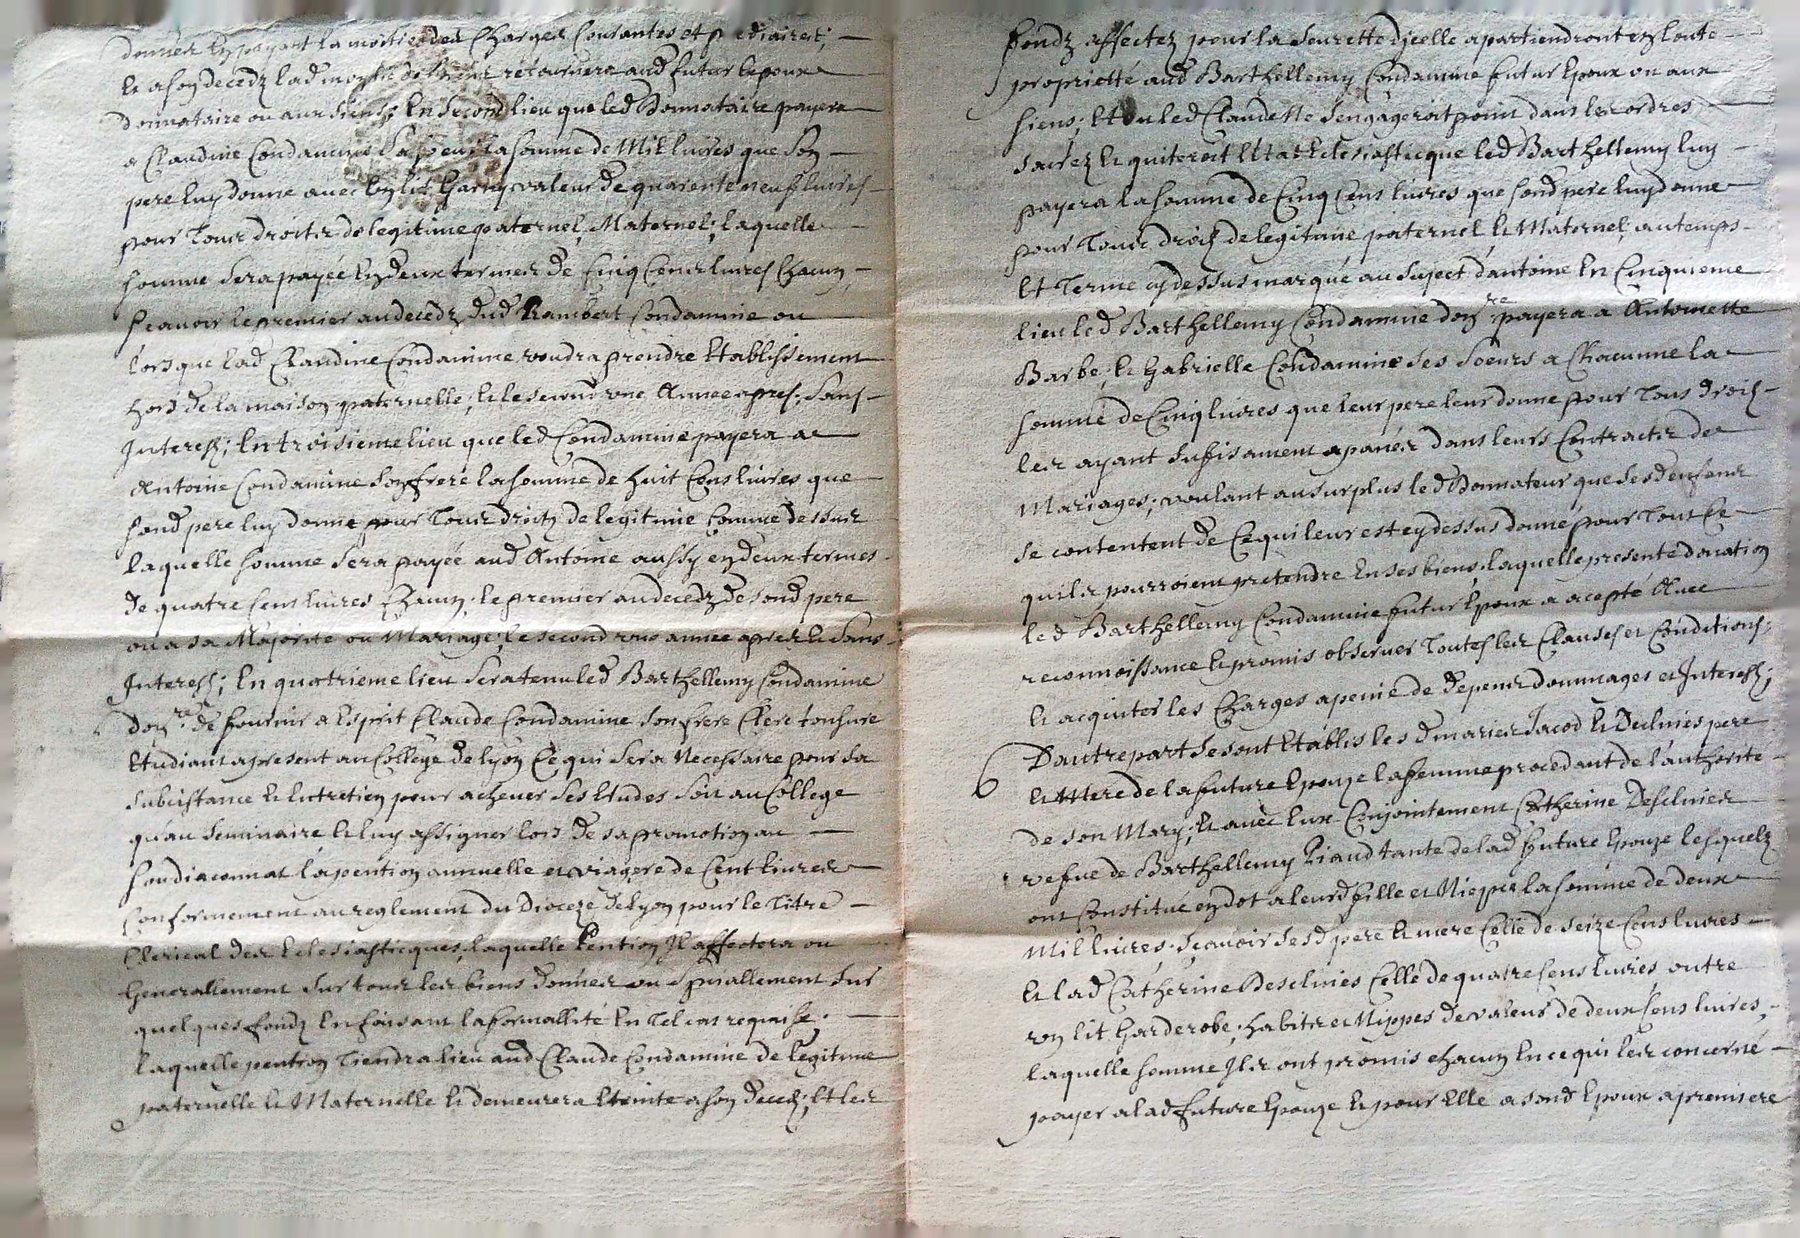 donnés en payant la moitié des Charges Courantes et
Et a son decedz lad moytié de retournera aud futur Epoux
donnataire ou aux siens, En second lieu que led Donnataire payera
a Claudine Condamine Sa soeur la somme de Mil livres que Son
pere luy donne avec un lit Garny valeur de quarente neuf livres
pour Tous droits de legitime paternel, Maternel; laquelle
somme Sera payée en deux termes de Cinq Cens livres Chacun,
scavoir le premier au decedz dud Rambert Condamine ou
lors que lad Claudine Condamine voudra prendre Etablissement
hors de la maison paternelle; et le second une Annee apres; Sans
Interestz; En troisieme lieu que led Condamine payera a
Antoine Condamine Son frere la somme de huit Cens livres que
sond pere luy donne pour Tous droitz de legitime Comme dessus
laquelle somme Sera payée aud Antoine aussy en deux termes
de quatre Cens livres Chacun, le premier au decedz de sond pere
ou a sa Majorité ou Mariage; le second une année apres et Sans
Interestz; En quatrieme lieu Sera tenu led Barthellemy Condamine
don.re de fournir a Esprit Claude Condamine Son frere Clerc tonsuré
Etudiant a present au College de Lyon Ce qui Sera Necessaire pour Sa
Subcistance et Entretien pour achever Ses Etudes Soit au College
qu'au Seminaire et luy assigner lors de sa promotion au
Soudiaconnat la pention annuelle et viagere de Cent livres
Conformement au reglement du Dioceze de Lyon pour le Titre
Clerical des Eclesiasticques, laquelle Pention Il affectera ou
Generallement Sur tous les biens donnés ou Spniallement Sur
quelques fondz En faisant la formallité En Tel cas requise;
laquelle pention Tiendra lieu aud Claude Condamine de legitime
paternelle et Maternelle et demeurera Eteinte a son decedz; Et les
fondz affectez pour la Seurette d'icelle apartiendront en toute
proprietté aud Barthellemy Condamine futur Epoux ou aux
siens; Et ou led Claude Ne S'engageroit point dans les ordres
Sacrez et quiteroit l'Etat Eclesiasticque led Barthellemy luy
payera la somme de Cinq Cens livres que sond pere luy donne
pour Tous droitz de legitime paternel et Maternel, au temps
Et Terme cy dessus marqué au Suject d'antoine En Cinquieme
lieu led Barthellemy Condamine don.re payera a Antoinette
Barbe, et Gabrielle Condamine Ses Soeurs a Chacunne la
somme de Cinq livres que leur pere leur donne pour Tous droitz
les ayant Sufisament apanés dans leurs Contractz de
Mariages; voulant au surplus led Donnateur que Sesd enfans
se contentent de Ce qui leur est cy dessus donné pour Tout Ce
qu'ils pourroient pretendre En ses biens, laquelle presente donation
led Barthellemy Condamine futur Epoux a acepté Avec
reconnoissance et promis observer Toutes les Clauses et Conditions;
et acquiter les Charges a peine de depens dommages et Interestz;
D'autre part Se sont Etablis les d mariés Jacod et Desclinies pere
et Mere de la future Epouze la femme procedant de l'authorité
de son Mary, et avec Eux Conjointement Catherine Desclinies
vefue de Barthellemy Riaud tante de lad future Epouze lesquelz
ont Constitué en dot a leurd fille et Niepce la somme de deux
Mil livres; Scavoir Sesd pere et mere Celle de Seize Cens livres
et lad Catherine Desclinies Celle de quatre Cens livres, outre
un lit Garderobe, habitz et Nippes de valeur de deux Cens livres,
laquelle somme Ils ont promis chacun En ce qui les concerne
payer a lad future Epouze et pour Elle a sond Epoux a premiere